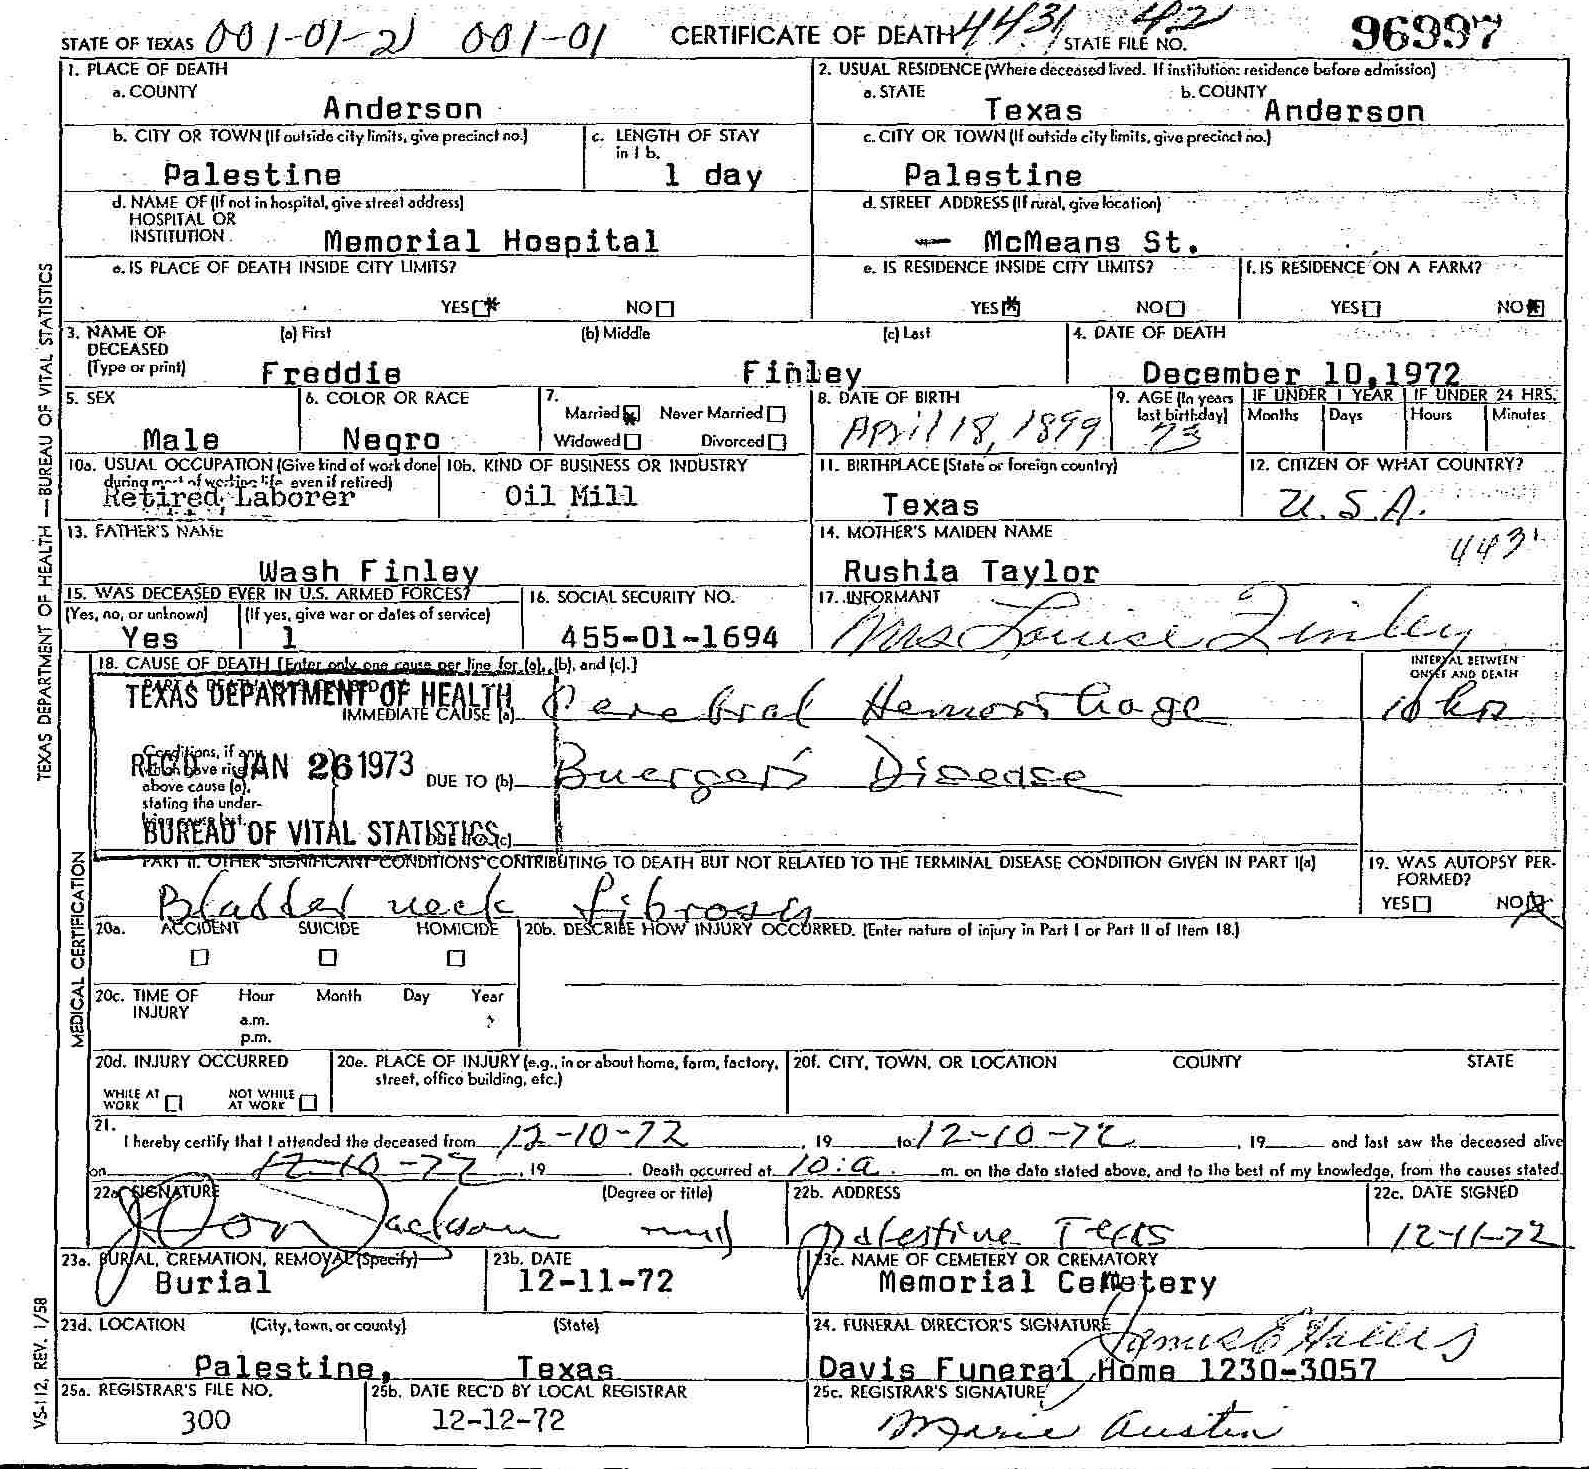 STATE OF TEXAS 001-01-2 001-01 CERTIFICATE OF DEATH 4431 42 STATE FILE NO. 96997
1. PLACE OF DEATH
a. COUNTY
Anderson
2. USUAL RESIDENCE (Where deceased lived. If institution: residence before admission)
a. STATE
Texas
b. COUNTY
Anderson
b. CITY OR TOWN (If outside city limits, give precinct no.)
Palestine
c. LENGTH OF STAY
in 1 b.
1 day
c. CITY OR TOWN (If outside city limits, give precinct no.)
Palestine
d. NAME OF (If not in hospital, give street address)
HOSPITAL OR
INSTITUTION
Memorial Hospital
d. STREET ADDRESS (If rural, give location)
— McMeans St.
e. IS PLACE OF DEATH INSIDE CITY LIMITS?
YES NO
e. IS RESIDENCE INSIDE CITY LIMITS?
YES NO
f. IS RESIDENCE ON A FARM?
YES NO
3. NAME OF
DECEASED
(Type or print)
(a) First (b) Middle (c) Last
Freddie Finley
4. DATE OF DEATH
December 10,1972
5. SEX
Male
6. COLOR OR RACE
Negro
7.
Married Never Married
Widowed Divorced
8. DATE OF BIRTH
April 18, 1899
9. AGE (In years
last birthday)
73
IF UNDER 1 YEAR
Months Days
IF UNDER 24 HRS.
Hours Minutes
10a. USUAL OCCUPATION (Give kind of work done
during most of working life, even if retired)
Retired Laborer
10b. KIND OF BUSINESS OR INDUSTRY
Oil Mill
11. BIRTHPLACE (State or foreign country)
Texas
12. CITIZEN OF WHAT COUNTRY?
U.S.A.
13. FATHER'S NAME
Wash Finley
14. MOTHER'S MAIDEN NAME
Rushia Taylor
443
15. WAS DECEASED EVER IN U.S. ARMED FORCES?
(Yes, no, or unknown) (If yes, give war or dates of service)
Yes 1
16. SOCIAL SECURITY NO.
455-01-1694
17. INFORMANT
Mrs Louise Finley
18. CAUSE OF DEATH [Enter only one cause per line for (a), (b), and (c).]
INTERVAL BETWEEN
ONSET AND DEATH
TEXAS DEPARTMENT OF HEALTH
REC'D JAN 26 1973
BUREAU OF VITAL STATISTICS
IMMEDIATE CAUSE (a) Cerebral Hemorrhage 10 hrs
Conditions, if any,
which gave rise to
above cause (a),
stating the under-
lying cause last.
DUE TO (b) Buerger's Disease
(c)
PART II. OTHER SIGNIFICANT CONDITIONS CONTRIBUTING TO DEATH BUT NOT RELATED TO THE TERMINAL DISEASE CONDITION GIVEN IN PART I(a)
Bladder neck fibrosis
19. WAS AUTOPSY PER-
FORMED?
YES NO
20a. ACCIDENT SUICIDE HOMICIDE
20b. DESCRIBE HOW INJURY OCCURRED. (Enter nature of injury in Part I or Part II of Item 18.)
20c. TIME OF
INJURY
Hour Month Day Year
a.m.
p.m.
20d. INJURY OCCURRED
WHILE AT
WORK
NOT WHILE
AT WORK
20e. PLACE OF INJURY (e.g., in or about home, farm, factory,
street, office building, etc.)
20f. CITY, TOWN, OR LOCATION COUNTY STATE
21.
I hereby certify that I attended the deceased from 12-10-72, 19 to 12-10-72, 19 and last saw the deceased alive
on 12-10-72, 19 . Death occurred at 10:a. m. on the date stated above, and to the best of my knowledge, from the causes stated.
22a. SIGNATURE (Degree or title)
Jackson md
22b. ADDRESS
Palestine Texas
22c. DATE SIGNED
12-11-72
23a. BURIAL, CREMATION, REMOVAL (Specify)
Burial
23b. DATE
12-11-72
23c. NAME OF CEMETERY OR CREMATORY
Memorial Cemetery
23d. LOCATION (City, town, or county) (State)
Palestine, Texas
24. FUNERAL DIRECTOR'S SIGNATURE
Davis Funeral Home 1230-3057
25a. REGISTRAR'S FILE NO.
300
25b. DATE REC'D BY LOCAL REGISTRAR
12-12-72
25c. REGISTRAR'S SIGNATURE
Marie Austin
TEXAS DEPARTMENT OF HEALTH — BUREAU OF VITAL STATISTICS
MEDICAL CERTIFICATION
VS-112, REV. 1/58